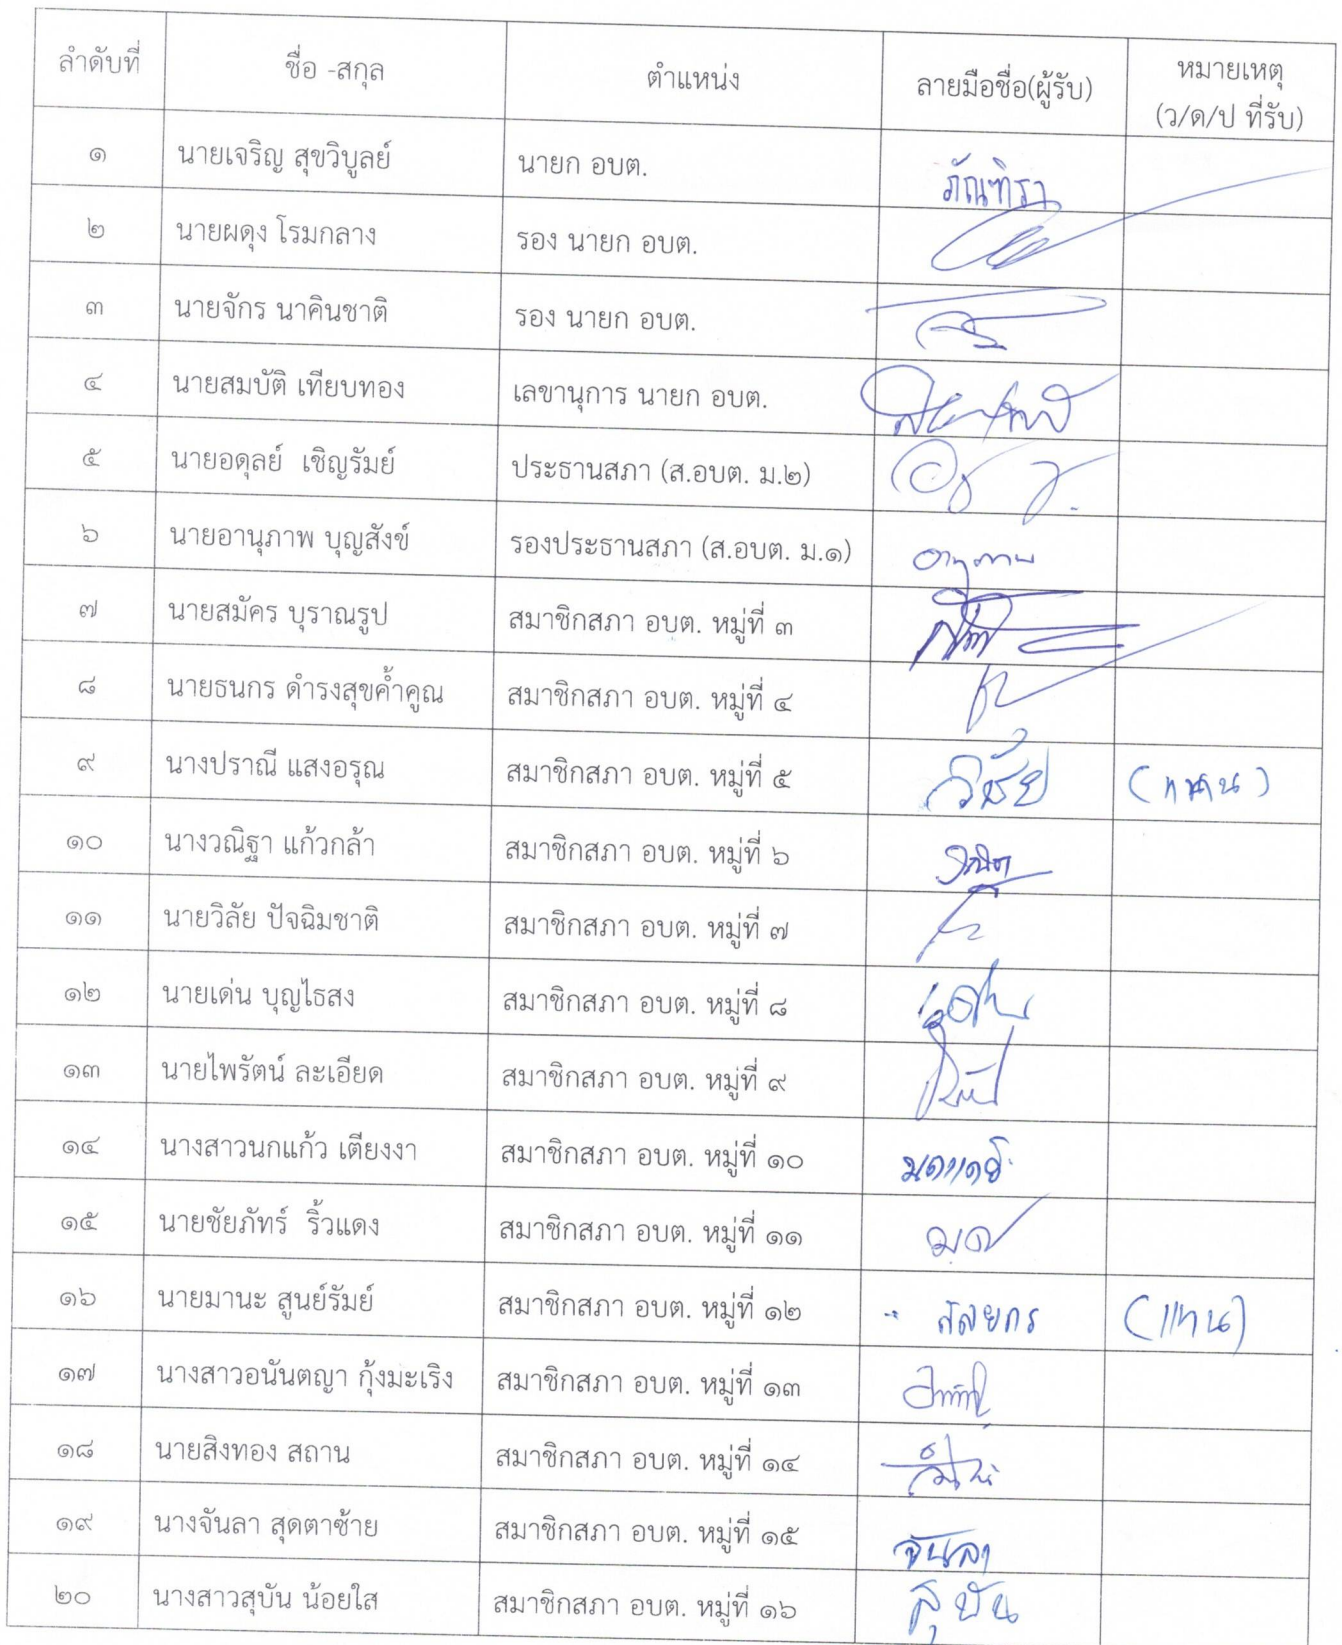 ลำดับที่ ชื่อ -สกุล ตำแหน่ง ลายมือชื่อ(ผู้รับ) หมายเหตุ
(ว/ด/ป ที่รับ)
๑ นายเจริญ สุขวิบูลย์ นายก อบต. ภัณฑิรา
๒ นายผดุง โรมกลาง รอง นายก อบต.
๓ นายจักร นาคินชาติ รอง นายก อบต.
๔ นายสมบัติ เทียบทอง เลขานุการ นายก อบต.
๕ นายอดุลย์ เชิญรัมย์ ประธานสภา (ส.อบต. ม.๒)
๖ นายอานุภาพ บุญสังข์ รองประธานสภา (ส.อบต. ม.๑) อานุภาพ
๗ นายสมัคร บุราณรูป สมาชิกสภา อบต. หมู่ที่ ๓
๘ นายธนกร ดำรงสุขค้ำคูณ สมาชิกสภา อบต. หมู่ที่ ๔
๙ นางปราณี แสงอรุณ สมาชิกสภา อบต. หมู่ที่ ๕ วิชัย
๑๐ นางวณิฐา แก้วกล้า สมาชิกสภา อบต. หมู่ที่ ๖
๑๑ นายวิลัย ปัจฉิมชาติ สมาชิกสภา อบต. หมู่ที่ ๗
๑๒ นายเด่น บุญไธสง สมาชิกสภา อบต. หมู่ที่ ๘
๑๓ นายไพรัตน์ ละเอียด สมาชิกสภา อบต. หมู่ที่ ๙
๑๔ นางสาวนกแก้ว เตียงงา สมาชิกสภา อบต. หมู่ที่ ๑๐
๑๕ นายชัยภัทร์ ริ้วแดง สมาชิกสภา อบต. หมู่ที่ ๑๑
๑๖ นายมานะ สูนย์รัมย์ สมาชิกสภา อบต. หมู่ที่ ๑๒ (แทน)
๑๗ นางสาวอนันตญา กุ้งมะเริง สมาชิกสภา อบต. หมู่ที่ ๑๓
๑๘ นายสิงทอง สถาน สมาชิกสภา อบต. หมู่ที่ ๑๔
๑๙ นางจันลา สุดตาซ้าย สมาชิกสภา อบต. หมู่ที่ ๑๕ จันลา
๒๐ นางสาวสุบัน น้อยใส สมาชิกสภา อบต. หมู่ที่ ๑๖ สุบัน